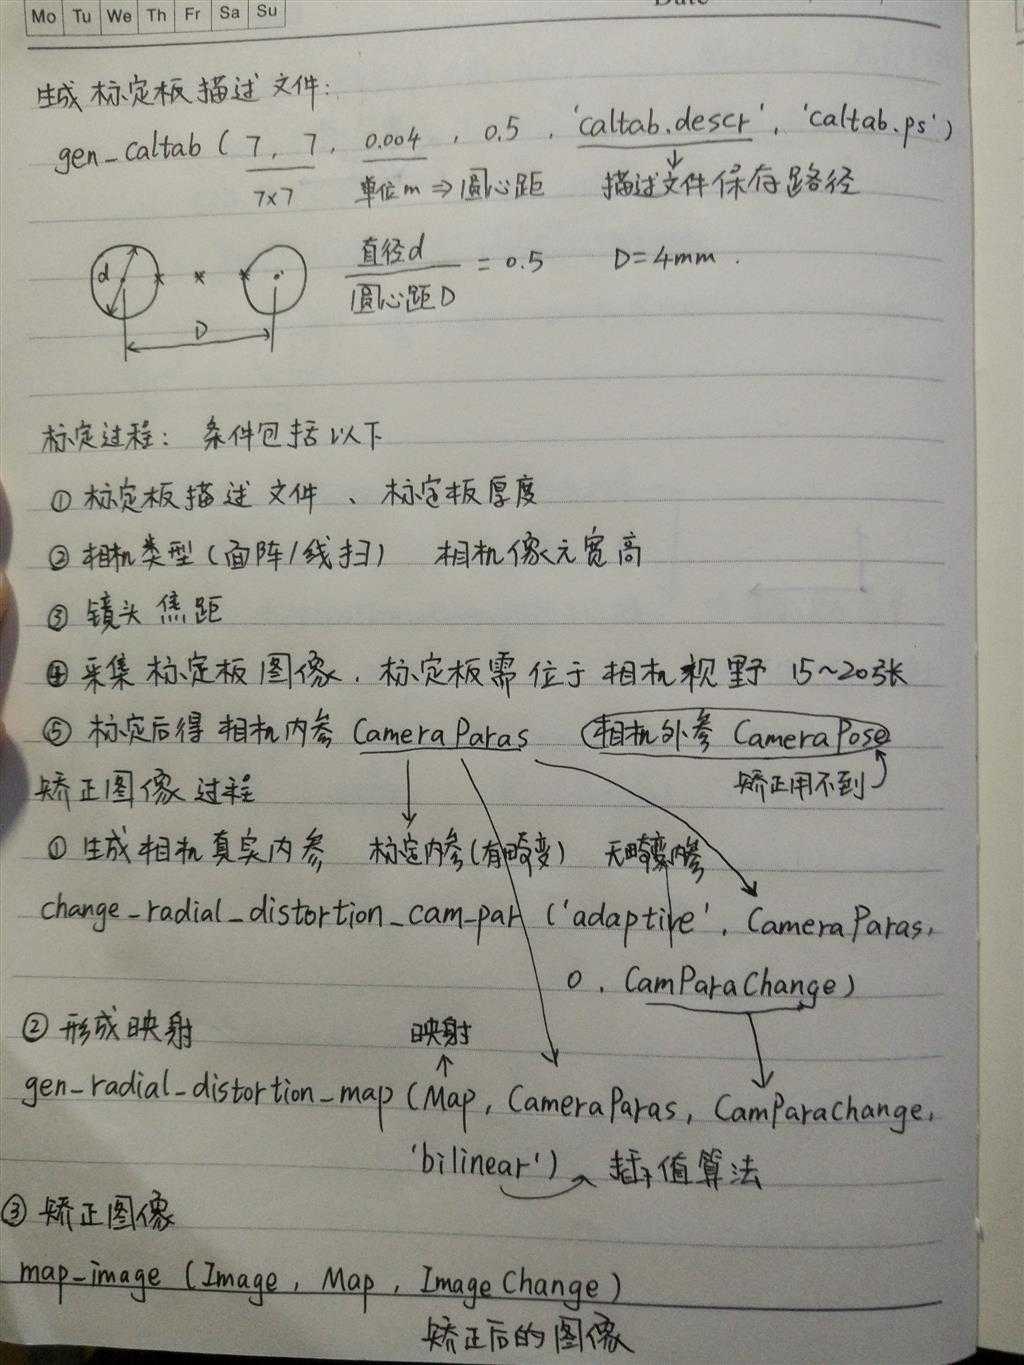 Mo Tu We Th Fr Sa Su
生成标定板描述文件:
gen_caltab ( 7, 7, 0.004, 0.5, 'caltab.descr', 'caltab.ps')
7×7 单位m⇒圆心距 描述文件保存路径
d
直径d
圆心距D
= 0.5 D=4mm.
D
标定过程: 条件包括以下
① 标定板描述文件、标定板厚度
② 相机类型(面阵/线扫) 相机像元宽高
③ 镜头焦距
④ 采集标定板图像.标定板需位于相机视野 15~20张
⑤ 标定后得相机内参 CameraParas 相机外参 CameraPose
矫正用不到
矫正图像过程
① 生成相机真实内参 标定内参(有畸变) 无畸变内参
change_radial_distortion_cam_par ('adaptive', CameraParas,
0, CamParaChange)
② 形成映射 映射
gen_radial_distortion_map (Map, CameraParas, CamParaChange,
'bilinear') 插值算法
③ 矫正图像
map_image (Image, Map, ImageChange)
矫正后的图像